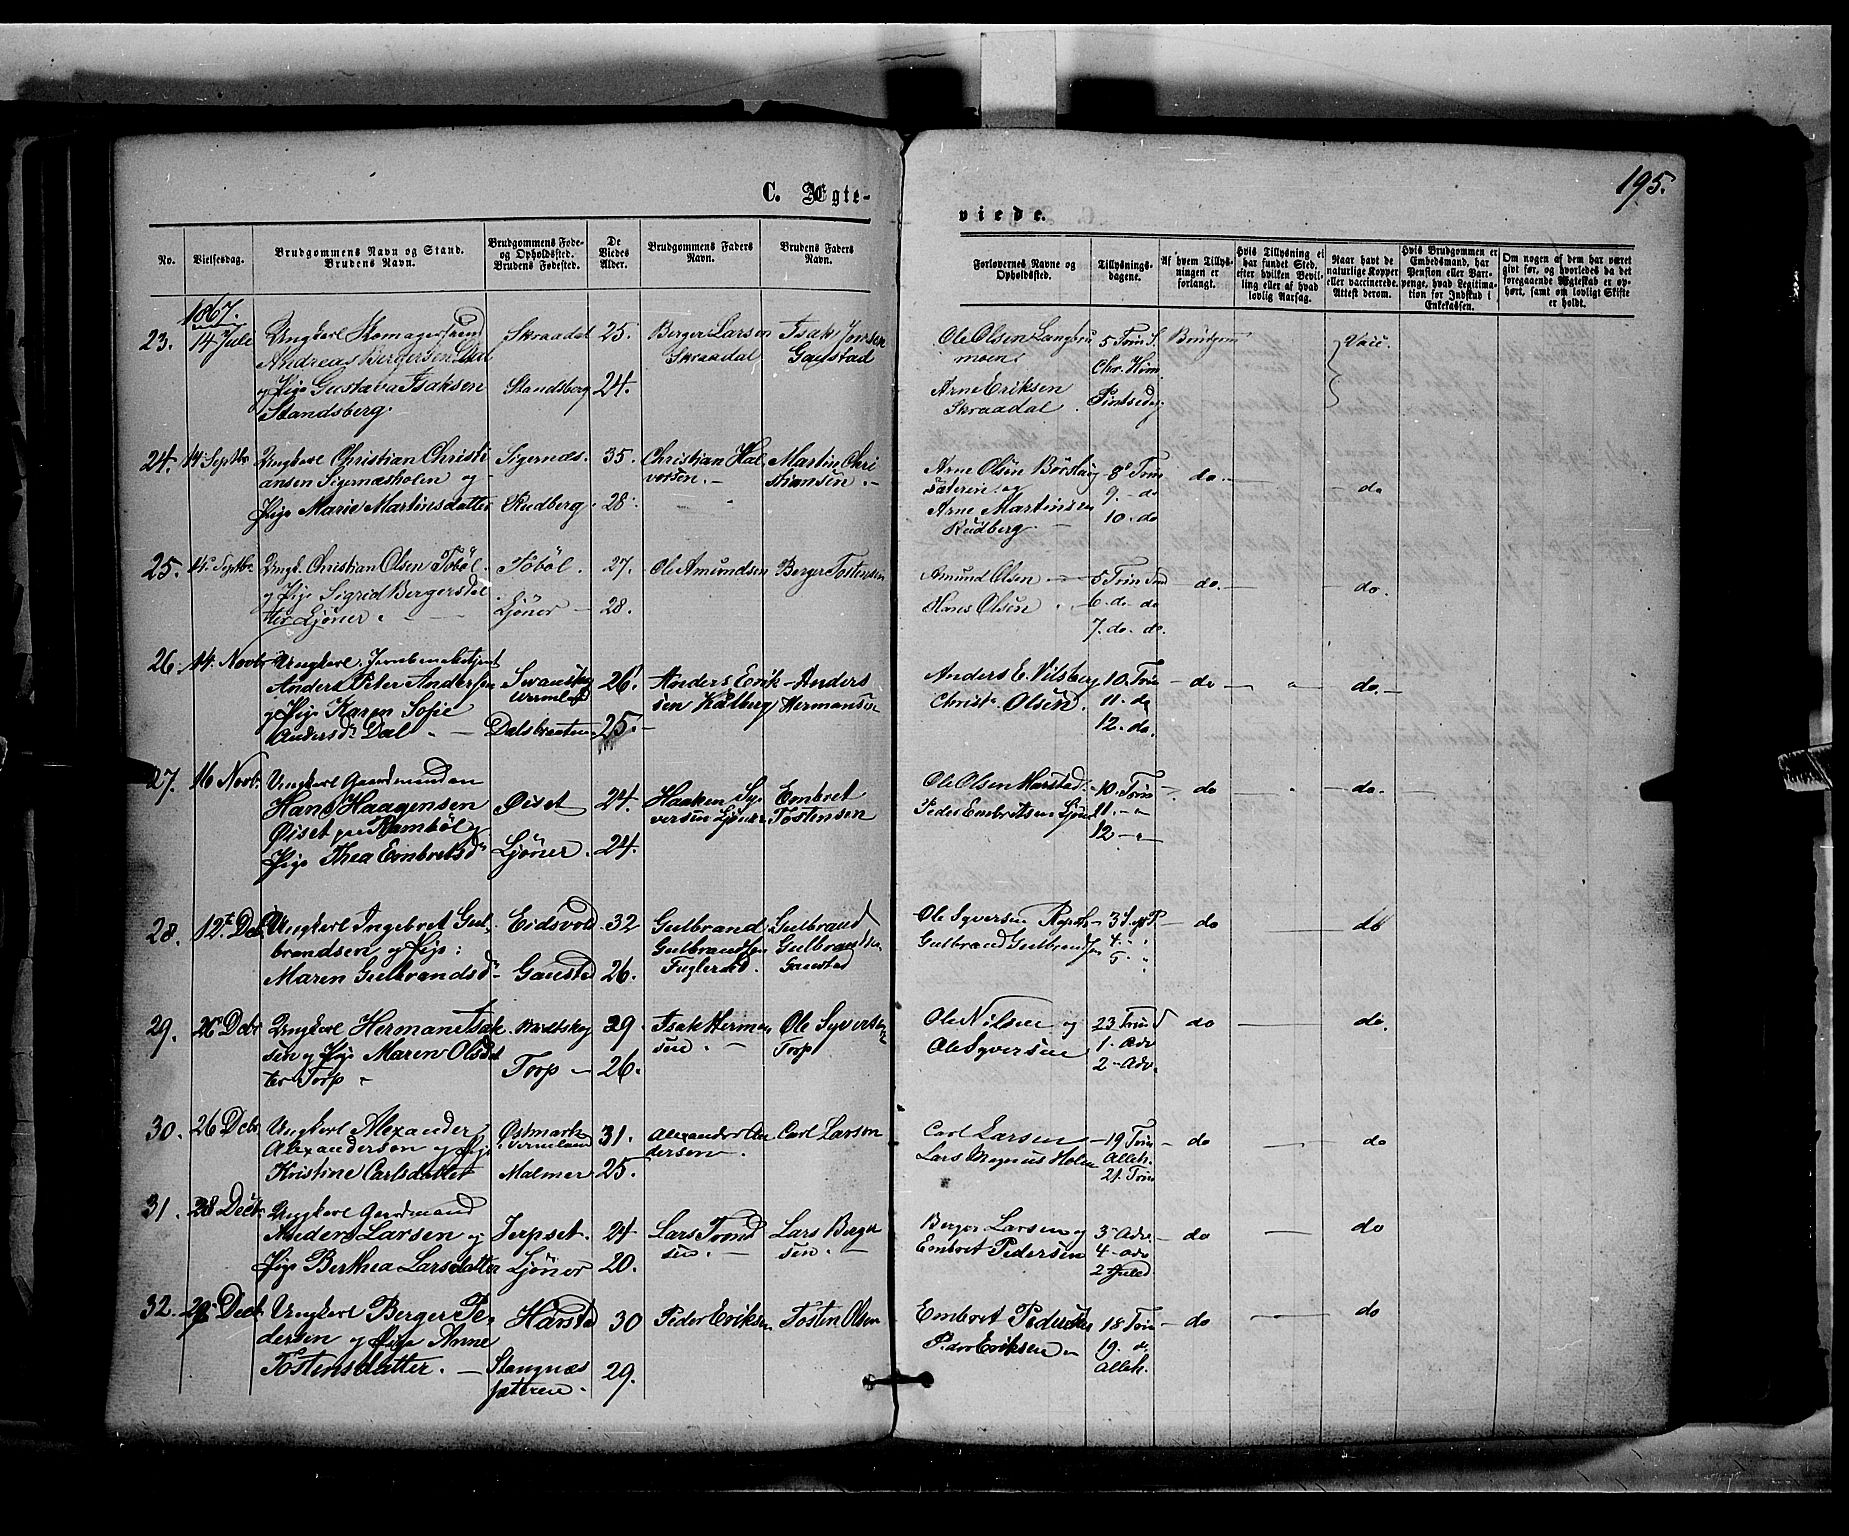 195.
C. Ægte-
viede.
No.
Vielsesdag.
Brudgommens Navn og Stand.
Brudens Navn.
Brudgommens Føde-
og Opholdssted.
Brudens Fødested.
De
Viedes
Alder.
Brudgommens Faders
Navn.
Brudens Faders
Navn.
Forlovernes Navne og
Opholdssted.
Tillysnings-
dagene.
Af hvem Tillys-
ningen er
forlangt.
Hvis Tillysning ei
har fundet Sted,
efter hvilken Bevil-
ling eller af hvad
lovlig Aarsag.
Naar havt de
naturlige Kopper
eller vaccinerede.
Attest derom.
Hvis Brudgommen er
Embedsmand, har
Pension eller Vart-
penge, hvad Legitima-
tion for Indskud i
Enkekassen.
Om nogen af dem har været
givt før, og hvorledes da det
foregaaende Ægteskab er op-
hørt, samt om lovligt Skifte
er holdt.
1867.
23. 14 Juli Ungkarl Skomagersvend Skraadal 25. Berger Larsen Isak Jonsen
Andreas Bergersen Skraadal Gaustad
og Pige Gustava Isaksen Standsberg 24.
Standsberg.
Ole Olsen Langeru 5 Trin. S. Brudgom Vacc.
moen Chr. Him
Arne Eriksen
Skraadal
24. 14 Septbr Ungkarl Christian Christi Sigernæs. 35. Christian Hal Martin Chri
ansen Sigernæsholen og vorsen. stiansen.
Pige Marie Martinsdatter Rudberg. 28.
Arne Olsen 8 Trin do. do
sæteren og 9. do
Arne Martinsen 10. do
Rudberg.
25. 14 Septbr. Ungk. Christian Olsen Töböl Töböl. 27. Ole Amundsen Berger Tostensen
og Pige Sigrid Bergersdat
ter Ljöner. Ljöner 28.
Amund Olsen 5 Trin do do.
Hans Olsen 6. do. do
7. do. do.
26. 14. Novbr Ungkarl Jernbanebetjent
Anders Peter Andersen Swanskog 26. Anders Erik- Anders
og Pige Karen Sofie Wermland sen Kalberg Hermansen
Andersd. Dal Dalsbraaten 25.
Anders E. Nilsberg 10. Trin do do.
Christ. Olsen. 11. do
12. do.
27. 16 Novbr. Ungkarl Gaardmanden
Hans Haagensen Öiset 24. Haaken Sy- Embret
Öiset paa Rambøl og versen Ljöner Tostensen
Pige Thea Embretsd. Ljöner. 24.
Ole Olsen Harstad. 10. Trin do do.
Peder Embretsen Ljöner 11.
12.
28. 12 Dec Ungkarl Ingebret Gul- Eidsvold 32 Gulbrand Gulbrand
brandsen og Pige: Gulbrandsen Gulbrandsen
Maren Gulbrandsd. Gaustad 26. Gaustad
Ole Syversen 3 do do
Gulbrand Gulbrandsen 4.
5.
29. 26 Dcbr Ungkarl Herman Isak 29 Isak Herman Ole Syversen
sen og Pige Maren Olsdat sen. Torp
ter Torp Torp 26.
Ole Nilsen og 23 Trin do do.
Ole Syversen 1. Adv
2 Adv.
30. 26 Dcbr Ungkarl Alexander Östmark 31. Alexander An Carl Larsen
Alexanderson og Pige Vermland dersen.
Kristine Carlsdatter Malmer 25.
Carl Larsen 19 Trin do do
Lars Magnus Holen Alleh.
21. Trin
31. 28 Decbr Ungkarl Gaardmand
Anders Larsen og Jerpset. 24 Lars Trond Lars Berger
Pige Berthea Larsdatter Ljöner 20. sen. sen.
Berger Larsen og 3 Adv do do
Embret Pedersen 4 adv
2 Juled.
32. 29 Decbr. Ungkarl Berger Pe- Harstad 30 Peder Eriksen Tosten Olsen
dersen og Pige Anne
Tostensdatter. Stangnæs 29.
sæteren.
Embret Pedersen 18 Trin do do
Peder Eriksen 19. do
Alleh.